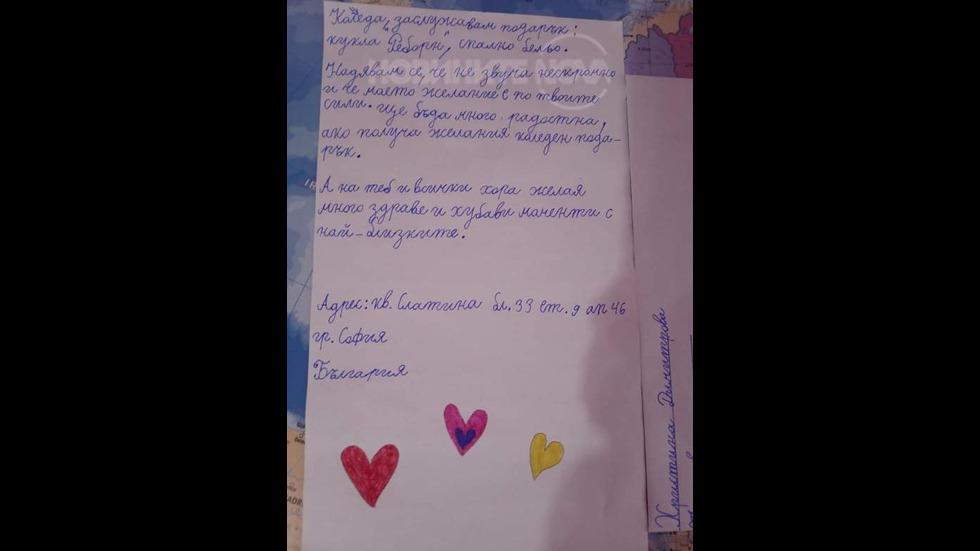 Коледа, заслужавам подарък:
кукла "Реборн", спално бельо.
Надявам се, че не звуча нескромно
и че моето желание е по твоите
сили. Ще бъда много радостна,
ако получа желания коледен пода-
рък.
А на теб и всички хора желая
много здраве и хубави моменти с
най-близките.
Адрес: кв. Слатина бл. 33 ет. 9 ап 46
гр. София
България
Христина Димитрова
НОВИНИТЕ NOVA